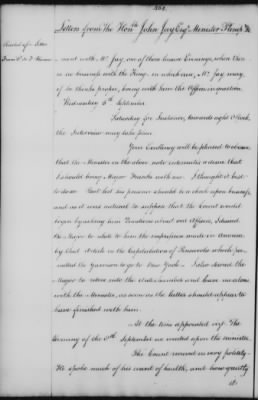 Letters from the Honble John Jay Esqr Minister Plenipy &c
ment with Mr Jay, one of these leisure Evenings, when there
is no business with the King, in which case, Mr Jay may,
if he thinks proper, bring with him the Officer in question
Wednesday 5th September
Saturday for Instance, towards eight o'Clock
the Interview may take place
Your Excellency will be pleased to observe
that the Minister in the above note intimates a desire that
I should bring Major Franks with me. I thought it best
to do so. But lest his presence should be a check upon business,
and as it was natural to suppose that the Count would
began by asking him Questions about our Affairs, I desired
the Major to relate to him the
by that Article in the Capitulation of Pensacola which per-
mitted the Garrison to go to New York. I also desired the
Major to retire into the Antichamber and leave me alone
with the Minister, as soon as the latter should appear to
have finished with him.
At the time appointed viz. The
Evening of the 8th September we waited upon the minister
The Count received us very politely
He spoke much of his want of health, and how greatly
it